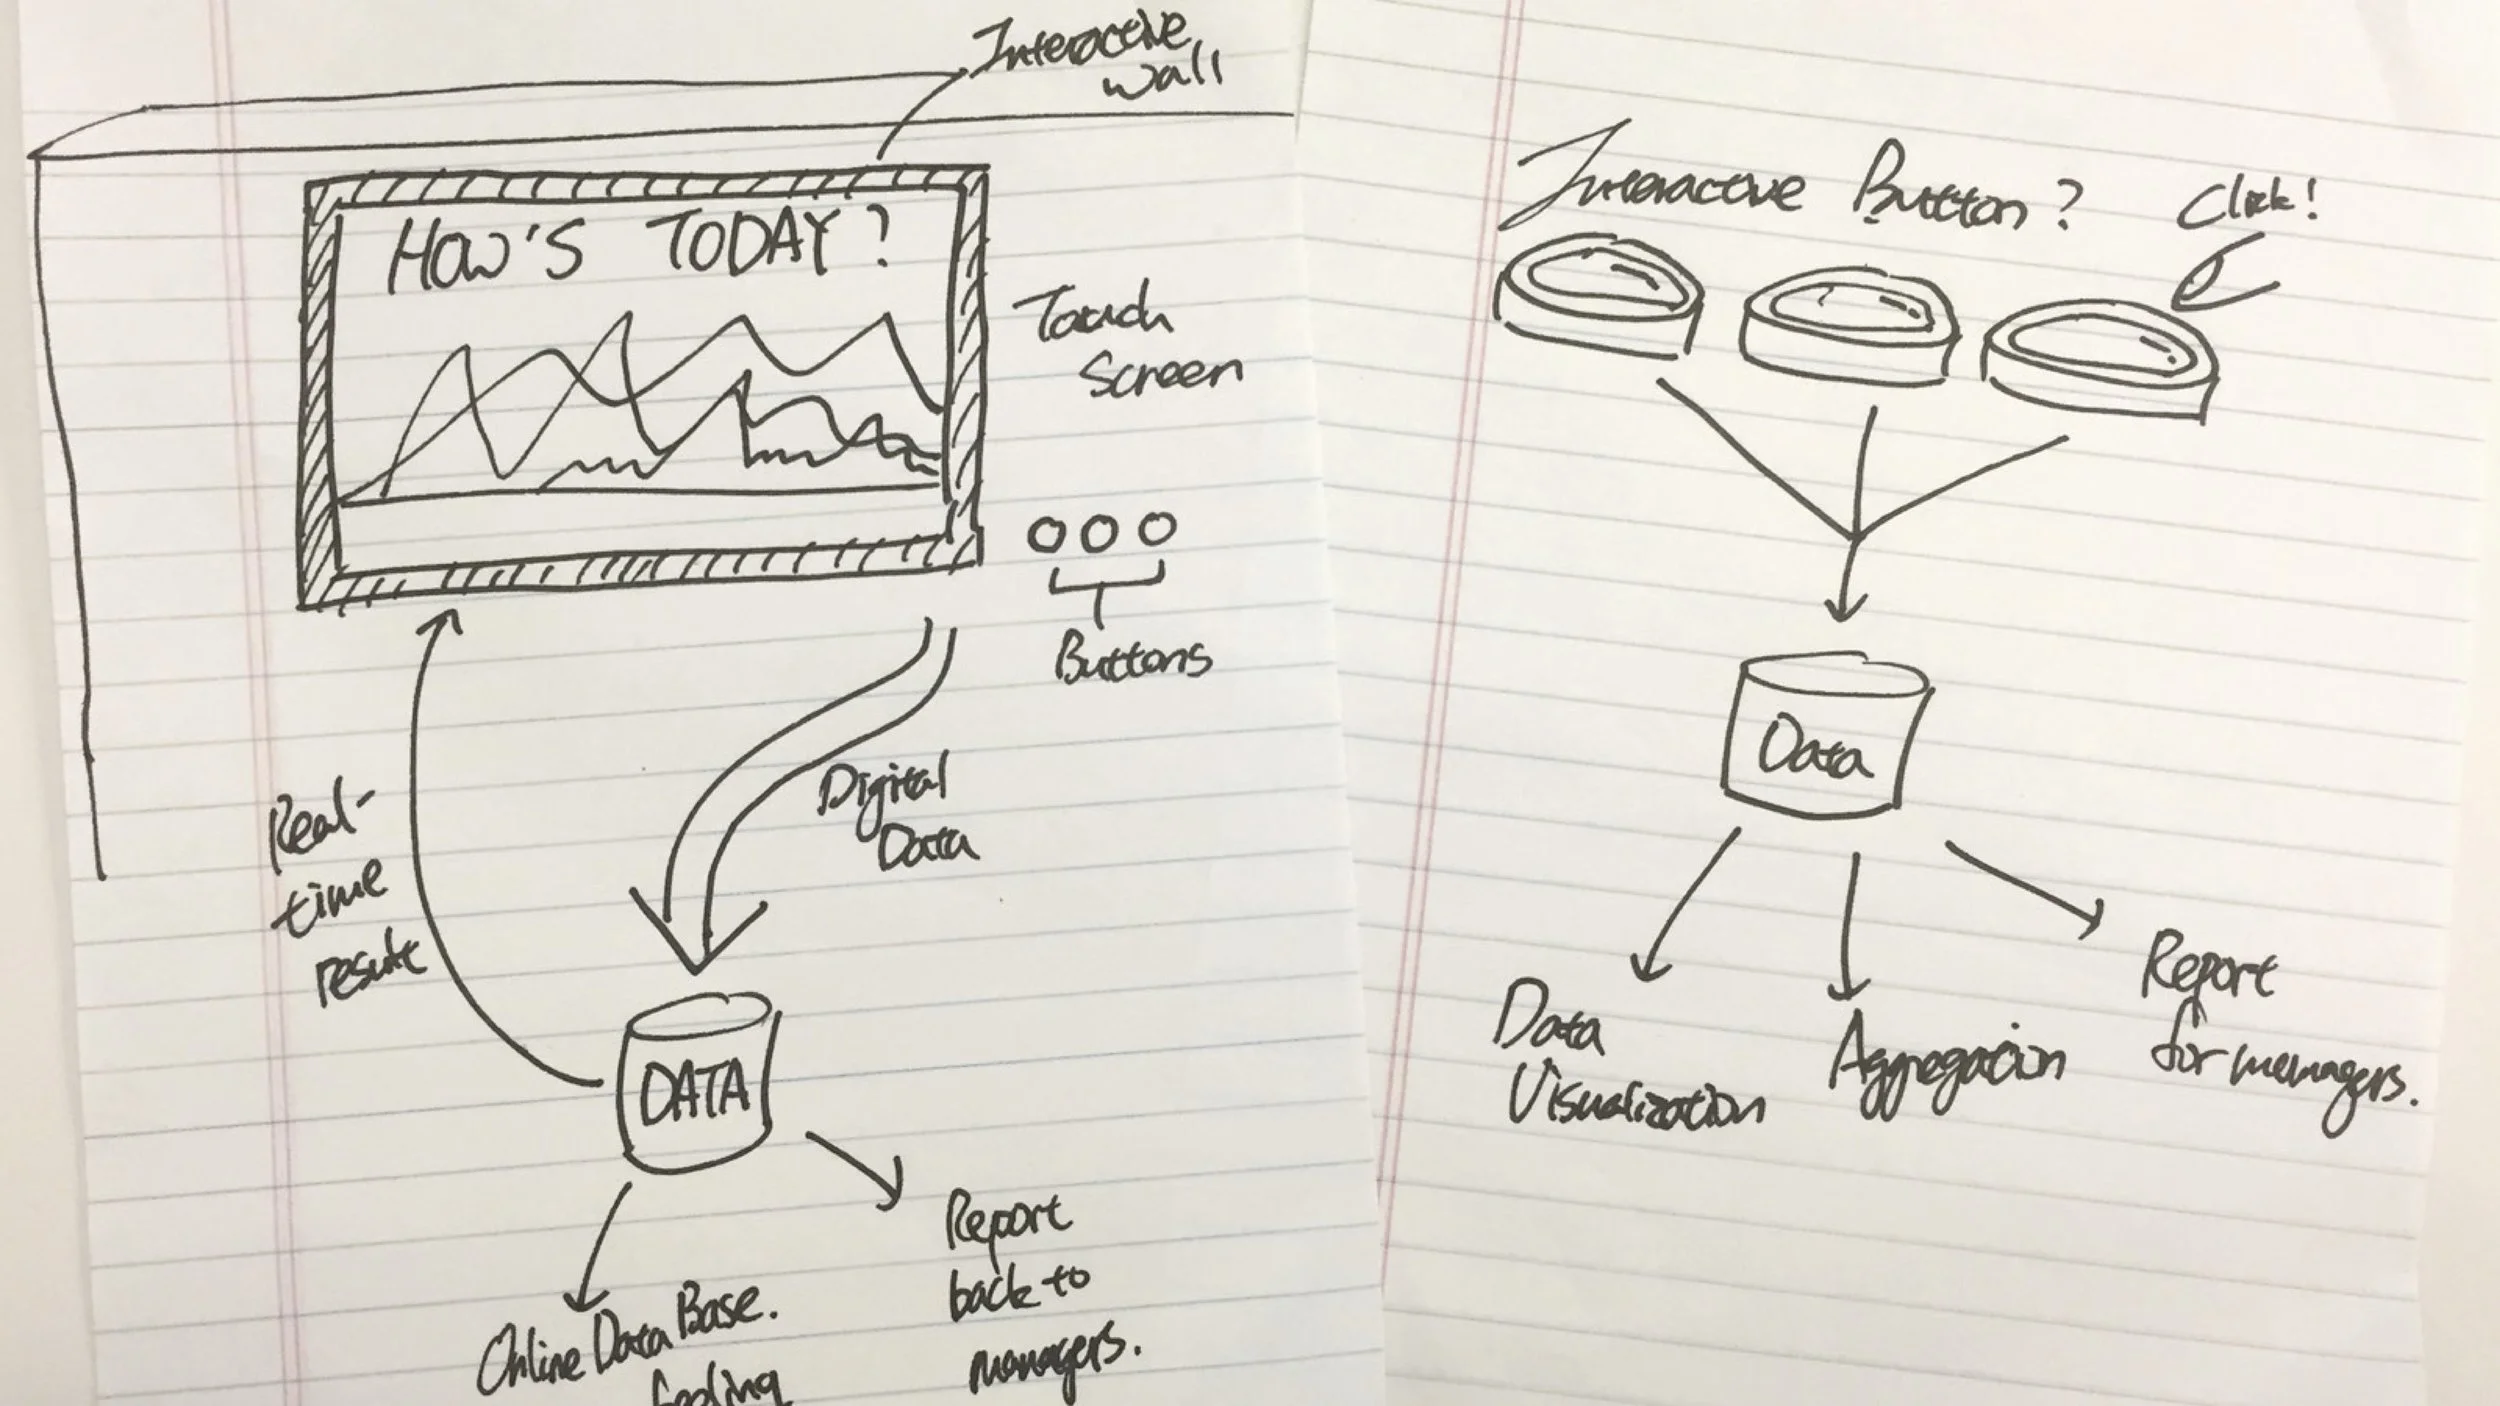 Interactive
wall
HOW'S TODAY?
Touch
Screen
Buttons
Digital
Data
Real-
time
result
DATA
Report
back to
managers.
Online Data Base.
Interactive Button?
Click!
Data
Data
Visualization
Aggregation
Report
for menagers.